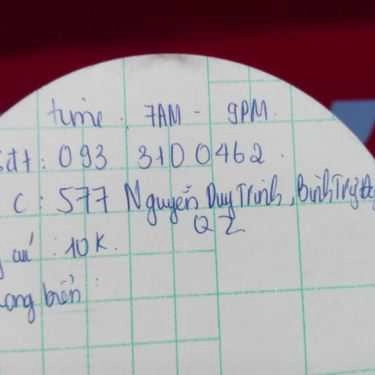 time. 7AM - 9PM
sđt: 093 3100462.
C: 577 Nguyễn Duy Trinh, Bình Trưng
Q2
: 10K.
biển: